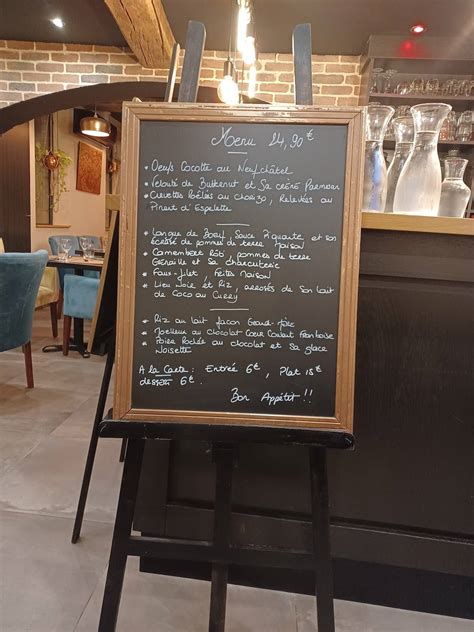 Menu 24,90€
* Oeufs Cocotte au Neufchâtel
* Velouté de Butternut et Sa crème Parmesan
* Crevettes Poêlées au chorizo, Relevées au
Piment d'Espelette
* Langue de Boeuf, Sauce Piquante et son
écrasé de pommes de terre maison
* Camembert Rôti, pommes de terre
Grenaille et Sa charcuterie
* Faux-filet, frites maison
* Lieu Noir et Riz, arrosés de Son lait
de Coco au Curry
* Riz au lait façon Grand-Mère
* Moelleux au chocolat Coeur Coulant Framboise
* Poire Pochée au chocolat et Sa glace
Noisette
A la Carte : Entrée 6€, Plat 15€
dessert 6€.
Bon Appétit !!